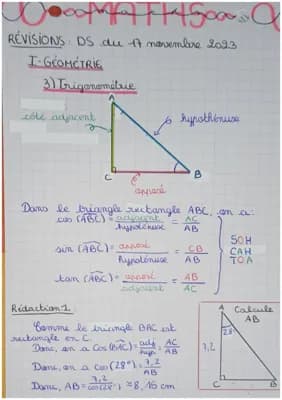 MATHS
RÉVISIONS : DS du 17 novembre 2023
I-GÉOMÉTRIE
3) Trigonométrie
A
côté adjacent
hypothénuse
C
B
opposé
Dans le triangle rectangle ABC, on a :
cos (ABC) = adjacent / hypoténuse = AC / AB
sin (ABC) = opposé / hypoténuse = CB / AB
tan (ABC) = opposé / adjacent = AB / AC
SOH
CAH
TOA
Rédaction 1 :
Comme le triangle BAC est
rectangle en C.
Donc, on a Cos(BAC) = adj / hyp = AC / AB
Donc, on a cos(28°) = 7,2 / AB
Donc, AB = 7,2 / cos(28°) ≈ 8,15 cm
A
Calcule
AB
28°
7,2
C
B